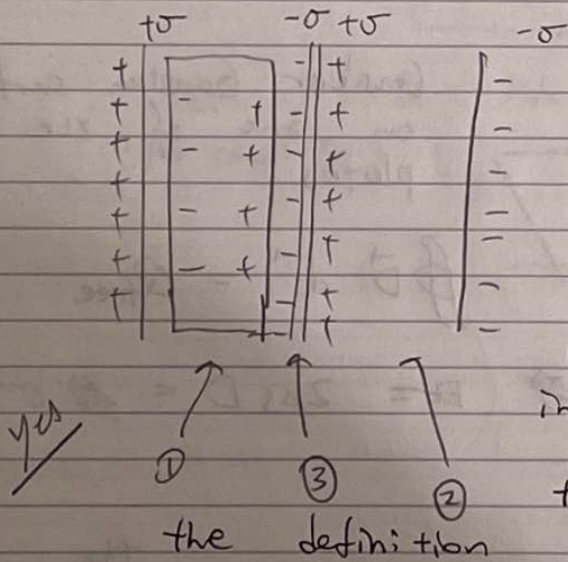 +σ -σ +σ -σ
+ - + -
+ - + - + -
+ - + - + -
+ - + -
+ - + - + -
+ - + - + -
+ - + -
yes
① ③ ②
the definition